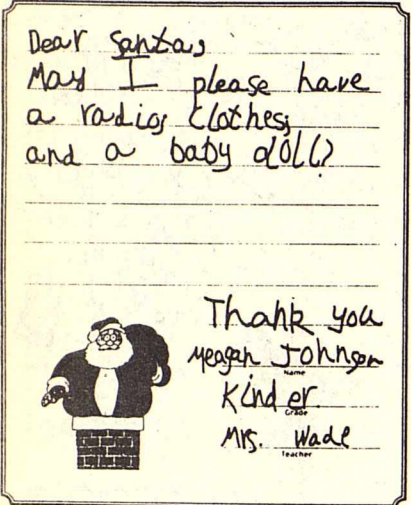 Dear Santa,
May I please have
a radio, clothes,
and a baby doll?
Thank you
Meagan Johnson
Name
Kinder.
Grade
Mrs. Wade
Teacher